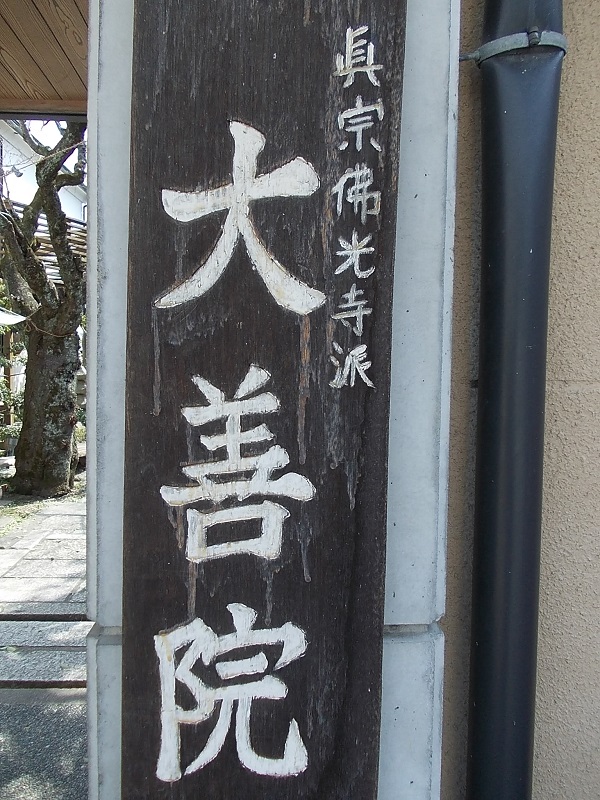 眞宗佛光寺派
大善院